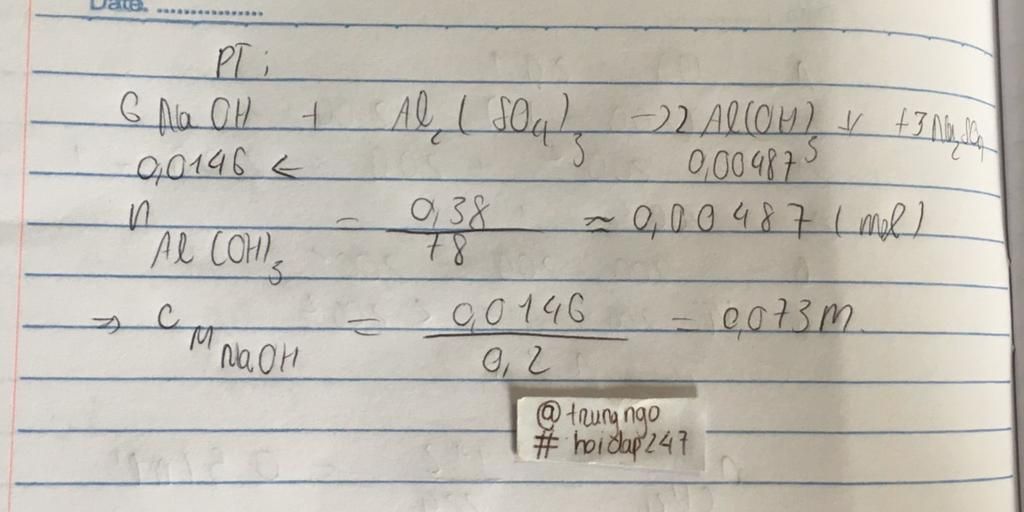 Date. ................
PT:
6 NaOH + Al₂(SO₄)₃ → 2 Al(OH)₃ ↓ + 3Na₂SO₄
0,0146 ← 0,00487
n Al(OH)₃ = 0,38 / 78 ≈ 0,00487 (mol)
⇒ C M NaOH = 0,0146 / 0,2 = 0,073M.
@trungngo
# hoidap247